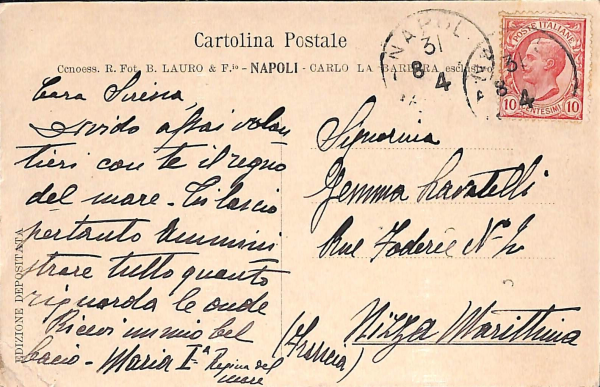 Cartolina Postale
Concess. R. Fot. B. LAURO & F.lo - NAPOLI - CARLO LA BARBERA esclusivo
EDIZIONE DEPOSITATA
POSTE ITALIANE
10 CENTESIMI 10
NAPOLI
31
8
4
31
8 4
Cara Sirena,
Divido assai volen
tieri con te il regno
del mare - Ti lascio
pertanto ammini
strare tutto quanto
riguarda le onde
Ricevi un mio bel
bacio - Maria Iª Regina del
mare
Signorina
Gemma
Rue Foderée N. 2
Nizza Marittima
(Francia)